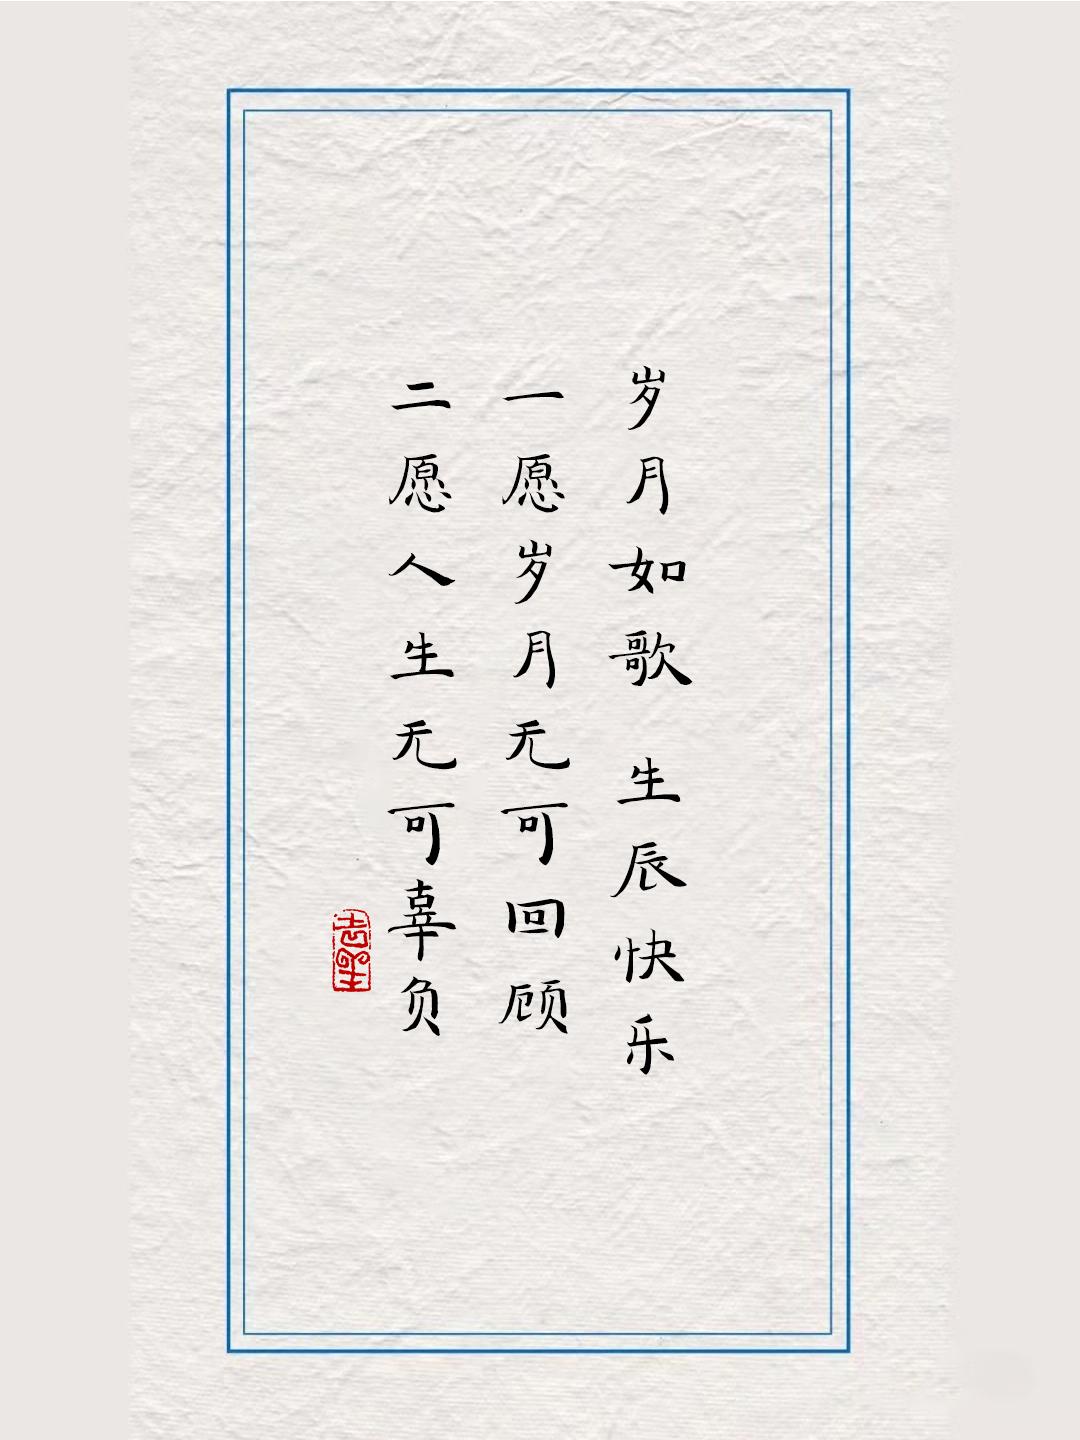 岁月如歌 生辰快乐
一愿岁月无可回顾
二愿人生无可辜负